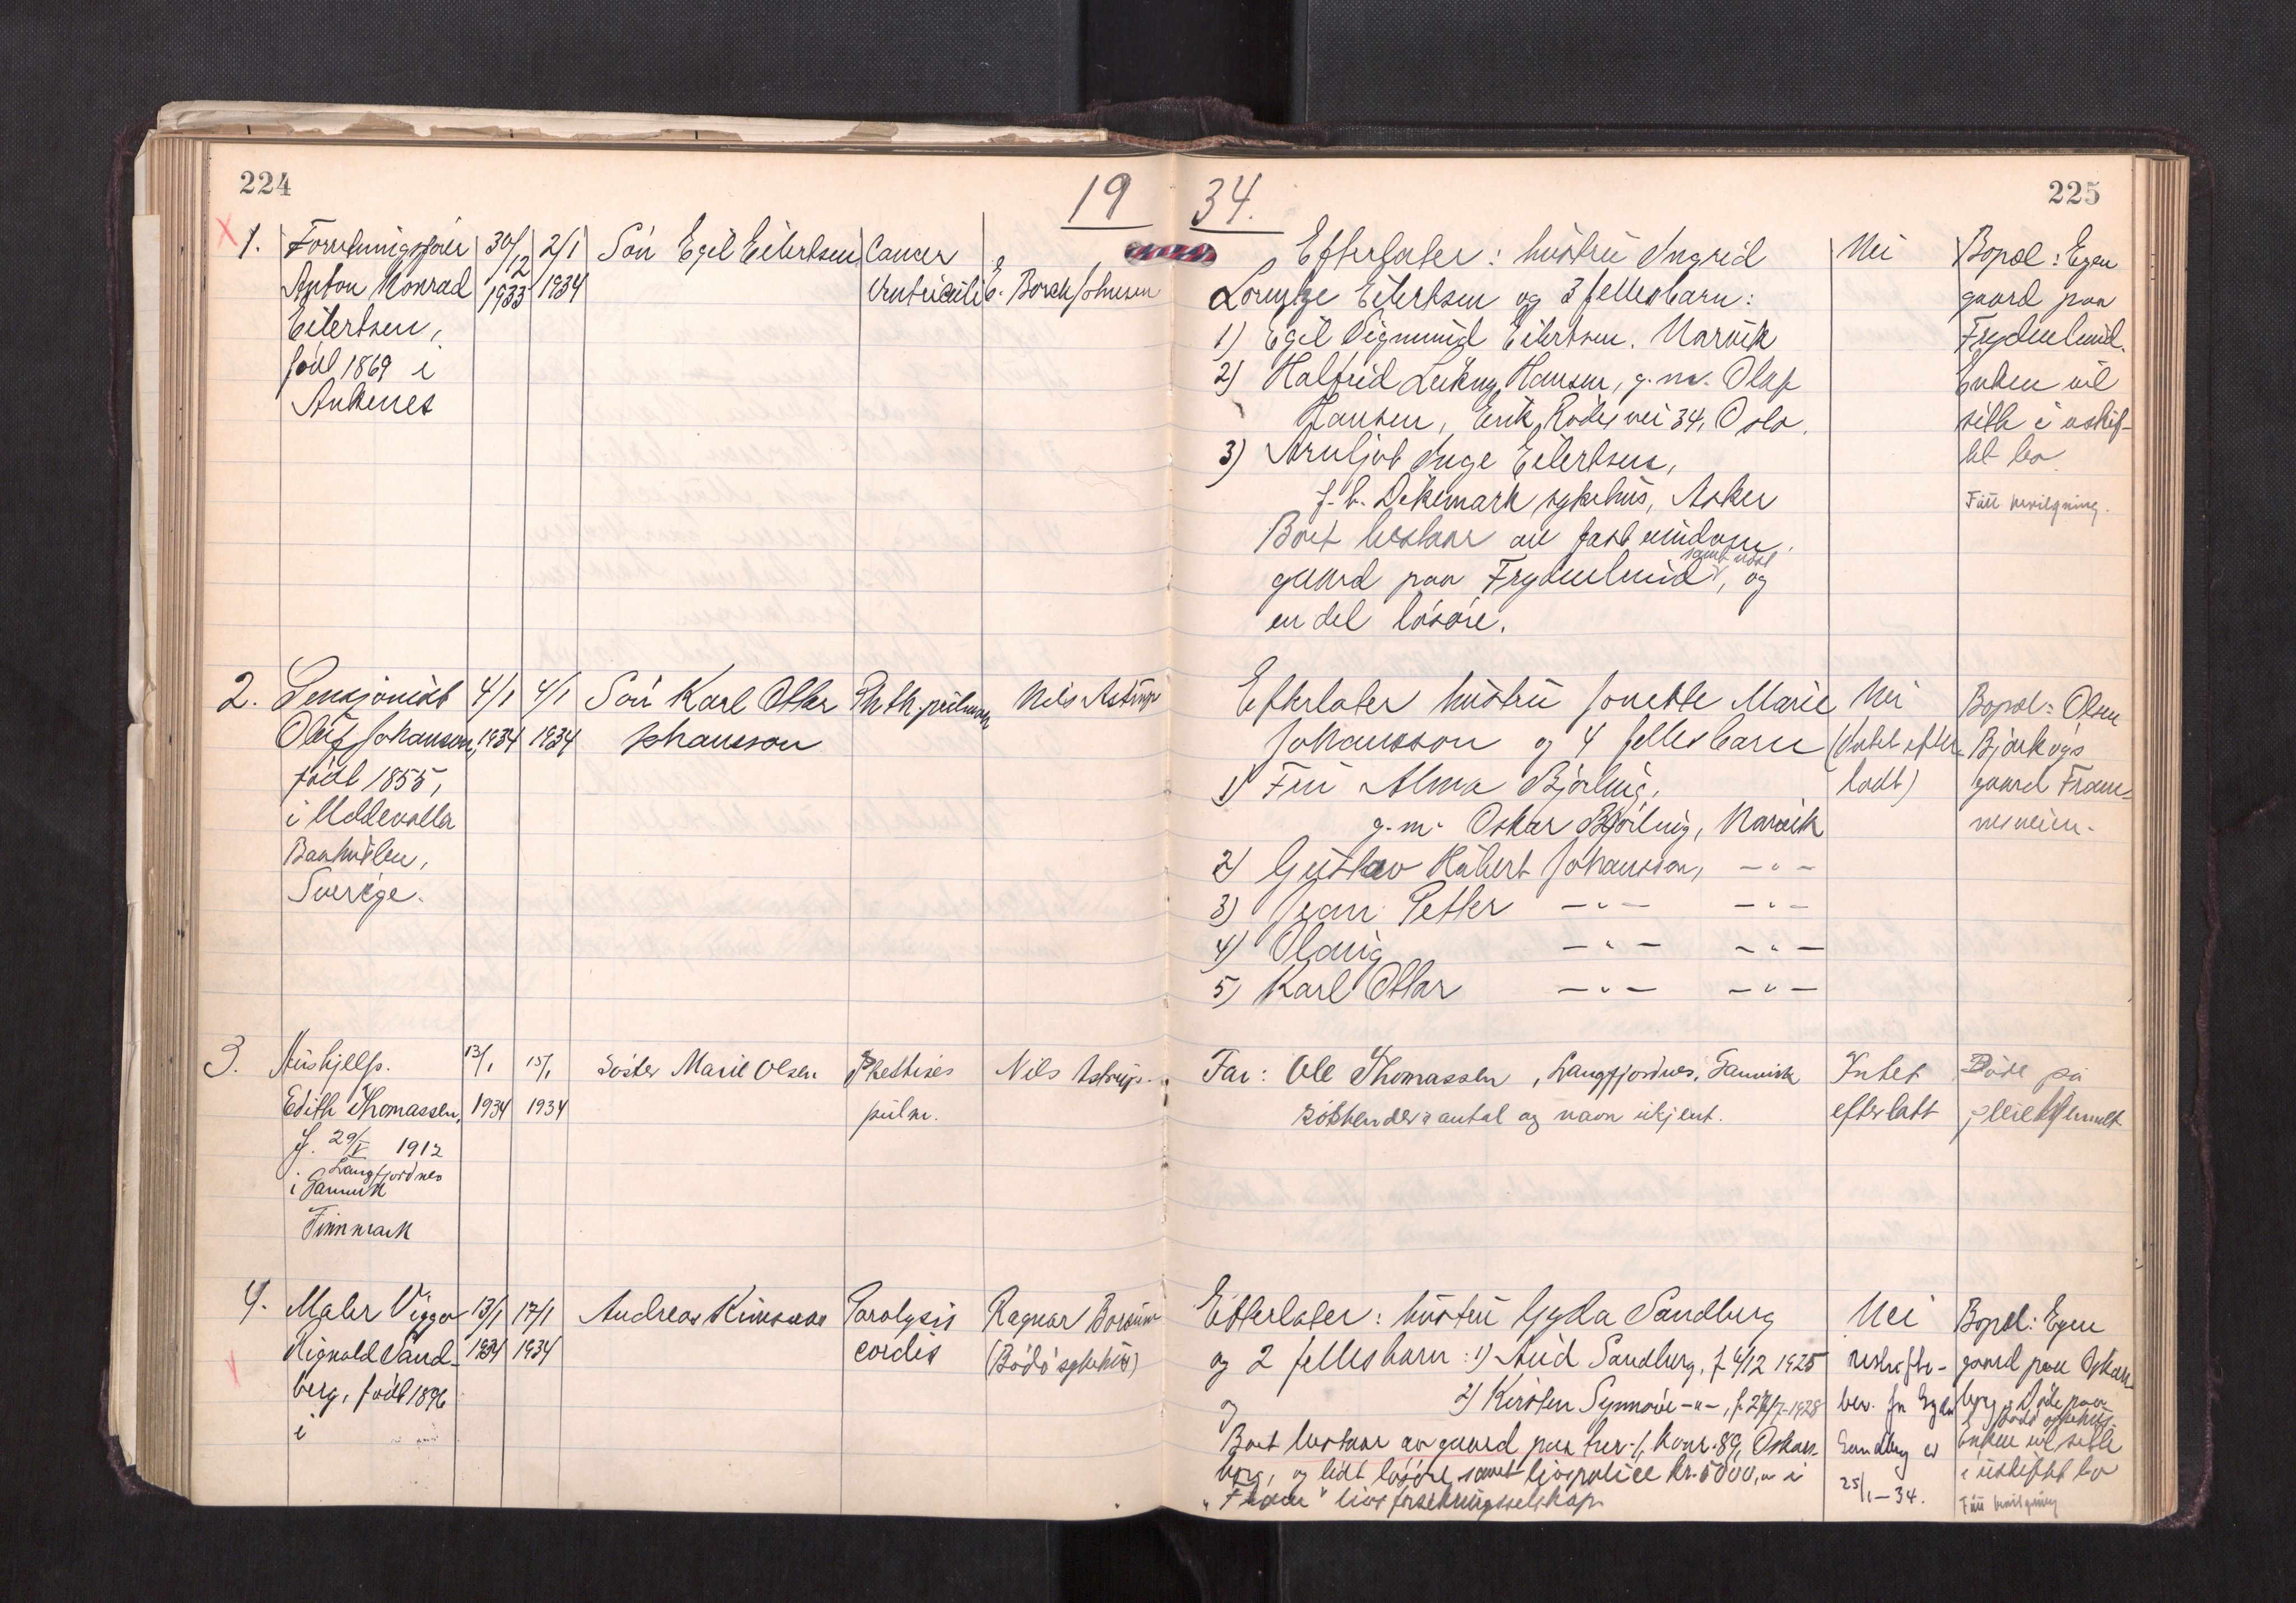 224
19 34.
225
1. Forretningsfører
Anton Konrad
Eilertsen,
född 1869 i
Ankenes
30/12
1933
2/1
1934
Sön Egil Eilertsen
Cancer
Ventriculi
E. Borch Johnsen
Efterlater: hustru Ingrid
Lorentze Eilertsen og 3 fellesbarn:
1) Egil Sigmund Eilertsen. Narvik
2) Halfrid Hansen, g.m. Olaf
Hansen, Erik Rödes vei 34, Oslo.
3) Arnljot Inge Eilertsen,
f. t. Dikemark sykehus, Asker
Boet bestaar av fast eiendom,
gaard paa Frydenlund, og
samt
en del lösöre.
Nei
Bopæl: Egen
gaard paa
Frydenlund.
Enken vil
sitte i uskif-
tet bo
Fått bevilgning.
2. Pensjonist
Oluf Johansson,
född 1855,
i Uddevalla
Sverige.
4/1
1934
4/1
1934
Sön Karl Ottar
Johansson
Phth. pulmon
Nils Astrup
Efterlater hustru Jonette Marie
Johansson og 4 fellesbarn
1) Fru Alma Björling,
g.m. Oskar Björling, Narvik
2) Gustav Hubert Johansson, -"-
3) Jean Petter -"- -"-
4) Olaug -"- -"-
5) Karl Ottar -"- -"-
Nei
(Intet efter
ladt)
Bopæl: Olsen
Björkvigs
gaard Fram-
nesveien.
3. Hushjelp.
Edith Thomassen,
f. 29/V 1912
Langfjordnes
i Gamvik
Finnmark
13/1
1934
15/1
1934
Söster Marie Olsen
Phthises
pulm.
Nils Astrup.
Far: Ole Thomassen, Langfjordnes, Gamvik
Söskenders antal og navn ukjent.
Intet
efterlatt
Döde på
pleiehjemmet
4. Maler Viggo
Rignald Sand-
berg, född 1896
i
13/1
1934
17/1
1934
Andreas
Paralysis
cordis
Ragnar Borsum
(Bodö sykehus)
Efterlater: hustru Gyda Sandberg
og 2 fellesbarn: 1) Aud Sandberg, f 4/12 1925
2) Kirsten Synnöve -"-, f. 27/7-1928
Boet bestaar av gaard paa br. 1, kvar. 89, Oskars-
borg, og lidt lösöre samt livspolice kr. 5000,- i
"Fram" livsforsikringsselskap.
Nei
uskifte-
bev. for Gyda
Sandberg er
25/1-34.
Bopæl: Egen
gaard paa Oskars-
borg. Döde paa
Bodö sykehus.
Enken vil sitte
i uskiftet bo
Fått bevilgning